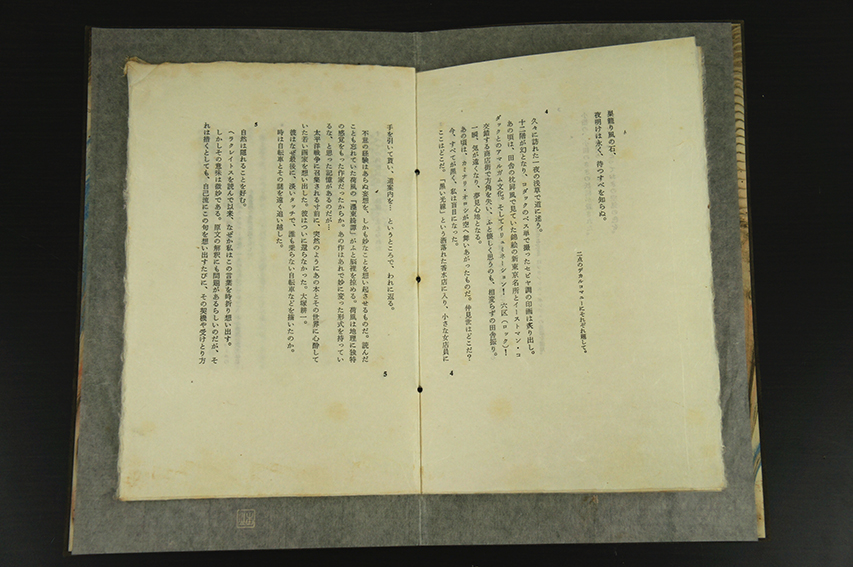 巣籠り風の石、
夜明けは永く、待つすべを知らぬ。
二点のデカルコマニーにそれぞれ題して。
4
久々に訪れた一夜の浅草で道に迷う。
十二階が幻となり、コダックのベス単で撮ったセピヤ調の印画は炙り出し。
あの頃は、田舎の枕屏風で見ていた錦絵の新東京名所とイーストマン・コ
ダックとのアマルガム文化。そしてイリュミネーション! 六区(ロック)!
交錯する商店街で方角を失い、ふと懐しく思うのも、相変らずの田舎振り。
一瞬、気が遠くなり、夢見心地となる。
あの頃は、カミナリ・オコシが空へ舞いあがったものだ。仲見世はどこだ?
今、すべてが黒く、私は盲目になった。
ここはどこだ。「黒い光線」という洒落た香水店に入り、小さな女店員に
4
手を引いて貰い、道案内を… というところで、われに返る。
不意の経験はあらぬ妄想を、しかも妙なことを想い起させるものだ。読んだ
ことも忘れていた荷風の『濹東綺譚』がふと脳裡を掠める。荷風は地理に独特
の感覚をもった作家だったからか。あの作はあれで妙に変った形式を持ってい
るな、と思った記憶があるのだが…
太平洋戦争に召集される寸前に、突然のようにあの本とその世界に心酔して
いた若い画家を想い出した。彼はついに還らなかった。大塚耕一。
彼はなぜ最後に、淡いタッチで、誰も乗らない自転車などを描いたのか。
時は自転車とその謎を遠く追い越した。
5
自然は隠れることを好む。
ヘラクレイトスを読んで以来、なぜか私はこの言葉を時折り想い出す。
しかしその意味は微妙である。原文の解釈にも問題があるらしいのだが、そ
れは措くとしても、自己流にこの句を想い出すたびに、その契機や受けとり方
5